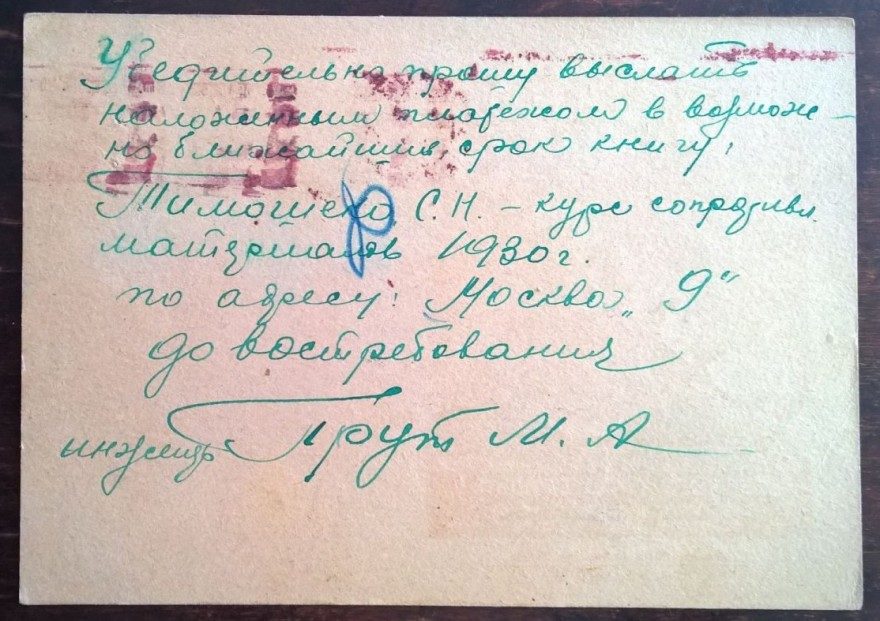 Убедительно прошу выслать
наложенным платежом в возмож-
но ближайший срок книгу:
Тимошенко С.П. – курс сопротивл.
материалов 1930 г.
по адресу: Москва „9"
до востребования
М. А